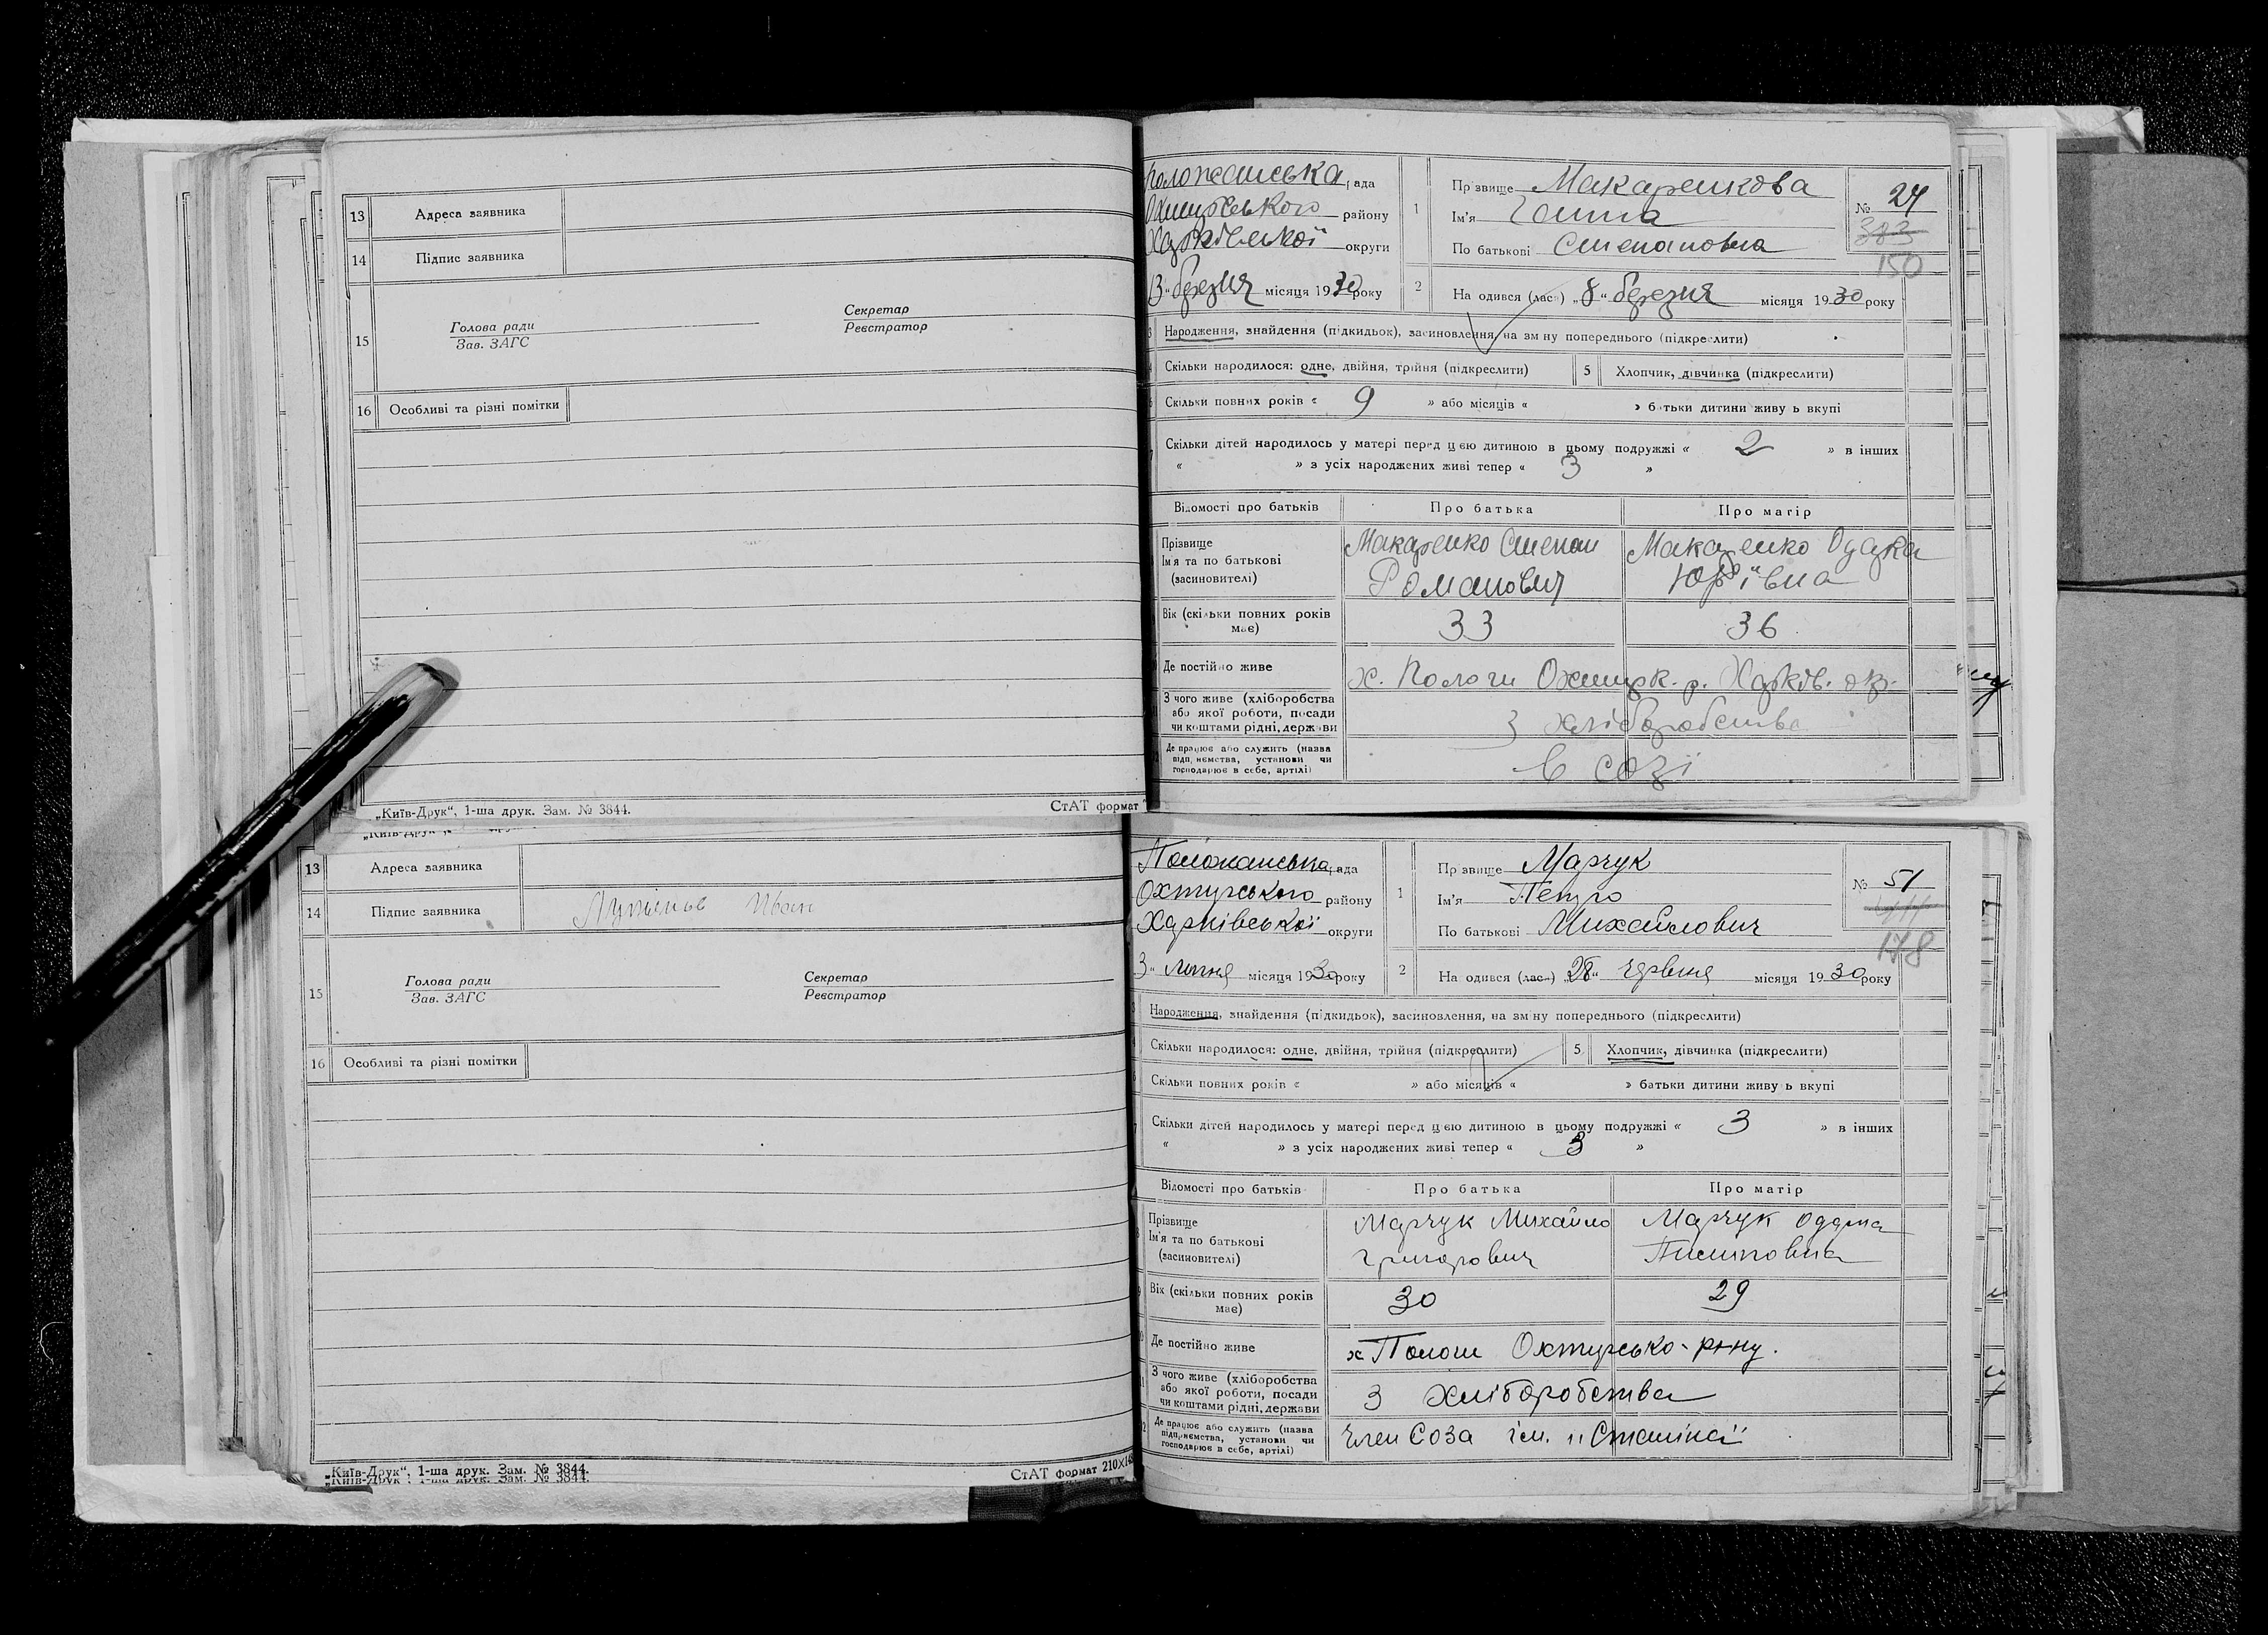 13 Адреса заявника
14 Підпис заявника
15 Голова ради
Зав. ЗАГС
Секретар
Реєстратор
16 Особливі та різні помітки
„Київ-Друк“, 1-ша друк. Зам. № 3844.
СтАТ формат
рада
Харківської округи
району
березня місяця 1930 року
1 Прізвище Макаренкова
Ім'я Ганна
По батькові Степановна
№ 24
383
150
2 На одився (лась) „8“ березня місяця 1930 року
Народження, знайдення (підкидьок), засиновлення, на зміну попереднього (підкреслити)
Скільки народилося: одне, двійня, трійня (підкреслити) 5 Хлопчик, дівчинка (підкреслити)
Скільки повних років « 9 » або місяців « » батьки дитини живуть вкупі
Скільки дітей народилось у матері перед цією дитиною в цьому подружжі « 2 » в інших
« » з усіх народжених живі тепер « 3 »
Відомості про батьків Про батька Про матір
Прізвище
Ім'я та по батькові
(засиновителі)
Макаренко Степан
Романович
Макаренко Одарка
Юр'ївна
Вік (скільки повних років
має)
33 36
Де постійно живе х. Пологи Охтирк. р. Харків. окр.
З чого живе (хліборобства
або якої роботи, посади
чи коштами рідні, держави
З хліборобства
Де працює або служить (назва
підприємства, установи чи
господарює в себе, артілі)
в созі
13 Адреса заявника
14 Підпис заявника Іван
15 Голова ради
Зав. ЗАГС
Секретар
Реєстратор
16 Особливі та різні помітки
„Київ-Друк“, 1-ша друк. Зам. № 3844.
СтАТ формат 210×148
Положанська рада
Охтирського району
Харківської округи
3“ липня місяця 1930 року
1 Прізвище Марчук
Ім'я Петро
По батькові Михайлович
№ 51
178
2 На одився (лась) „28“ червня місяця 1930 року
Народження, знайдення (підкидьок), засиновлення, на зміну попереднього (підкреслити)
Скільки народилося: одне, двійня, трійня (підкреслити) 5 Хлопчик, дівчинка (підкреслити)
Скільки повних років « » або місяців « » батьки дитини живуть вкупі
Скільки дітей народилось у матері перед цією дитиною в цьому подружжі « 3 » в інших
« » з усіх народжених живі тепер « 3 »
Відомості про батьків Про батька Про матір
Прізвище
Ім'я та по батькові
(засиновителі)
Марчук Михайло
Григорович
Марчук
Вік (скільки повних років
має)
30 29
Де постійно живе х Пологи Охтирсько-р-ну.
З чого живе (хліборобства
або якої роботи, посади
чи коштами рідні, держави
З хліборобства
Де працює або служить (назва
підприємства, установи чи
господарює в себе, артілі)
Член Соза ім. „Сталіна“